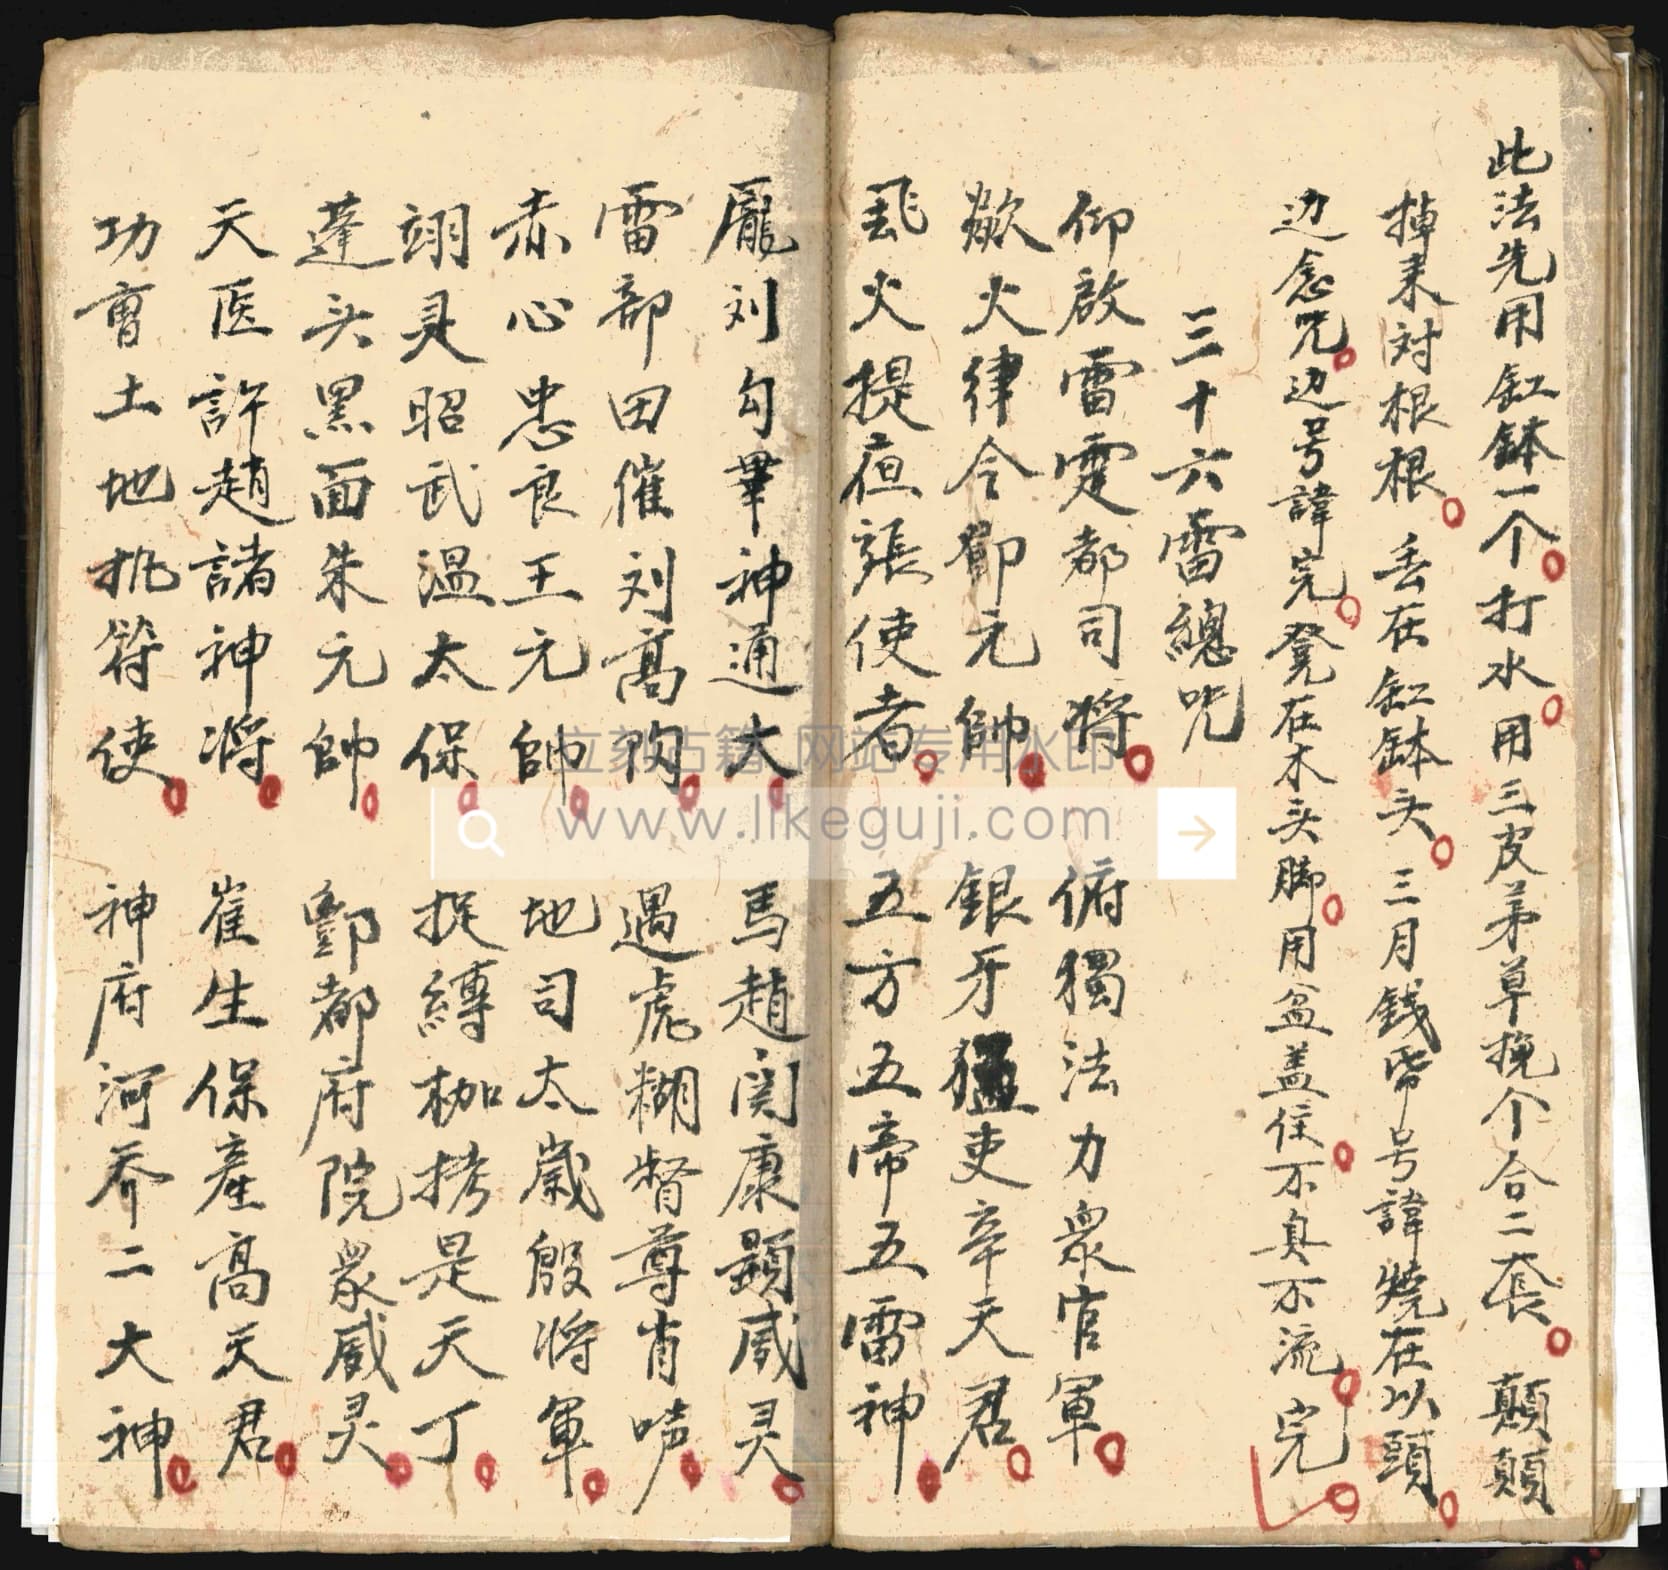 此法先用缸鉢一个打水用三皮茅草挽个合二套顛顛
掉来对根根丢在缸鉢头三月錢帋号諱燒在以頭
边念咒边号諱完凳在木头脚用盆盖住不臭不流完
三十六雷總咒
仰啟雷霆都司将 俯獨法力眾官軍
歘火律令鄧元帥 銀牙猛吏辛天君
飛火提疸張使者 五方五帝五雷神
龐刘勾畢神通大 馬趙関康顕威灵
雷部田催刘高 遇虎糊督尊肖
赤心忠良王元帥 地司太歲殷将軍
翊灵昭武温太保 捉縛枷拷是天丁
蓬头黑面朱元帥 酆都府院眾威灵
天医許趙諸神将 崔生保產高天君
功曹土地执符使 神府河乔二大神
立刻古籍 网站专用水印
www.likeguji.com